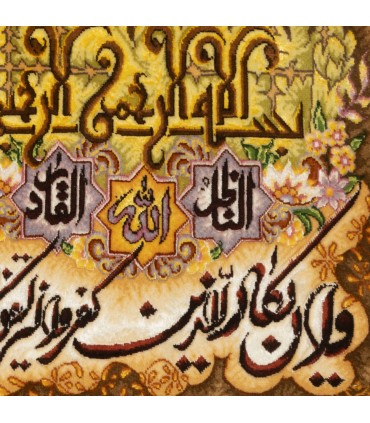 بسم الله الرحمن الرحیم
الناظر الله القادر
وان یکاد الذین کفروا